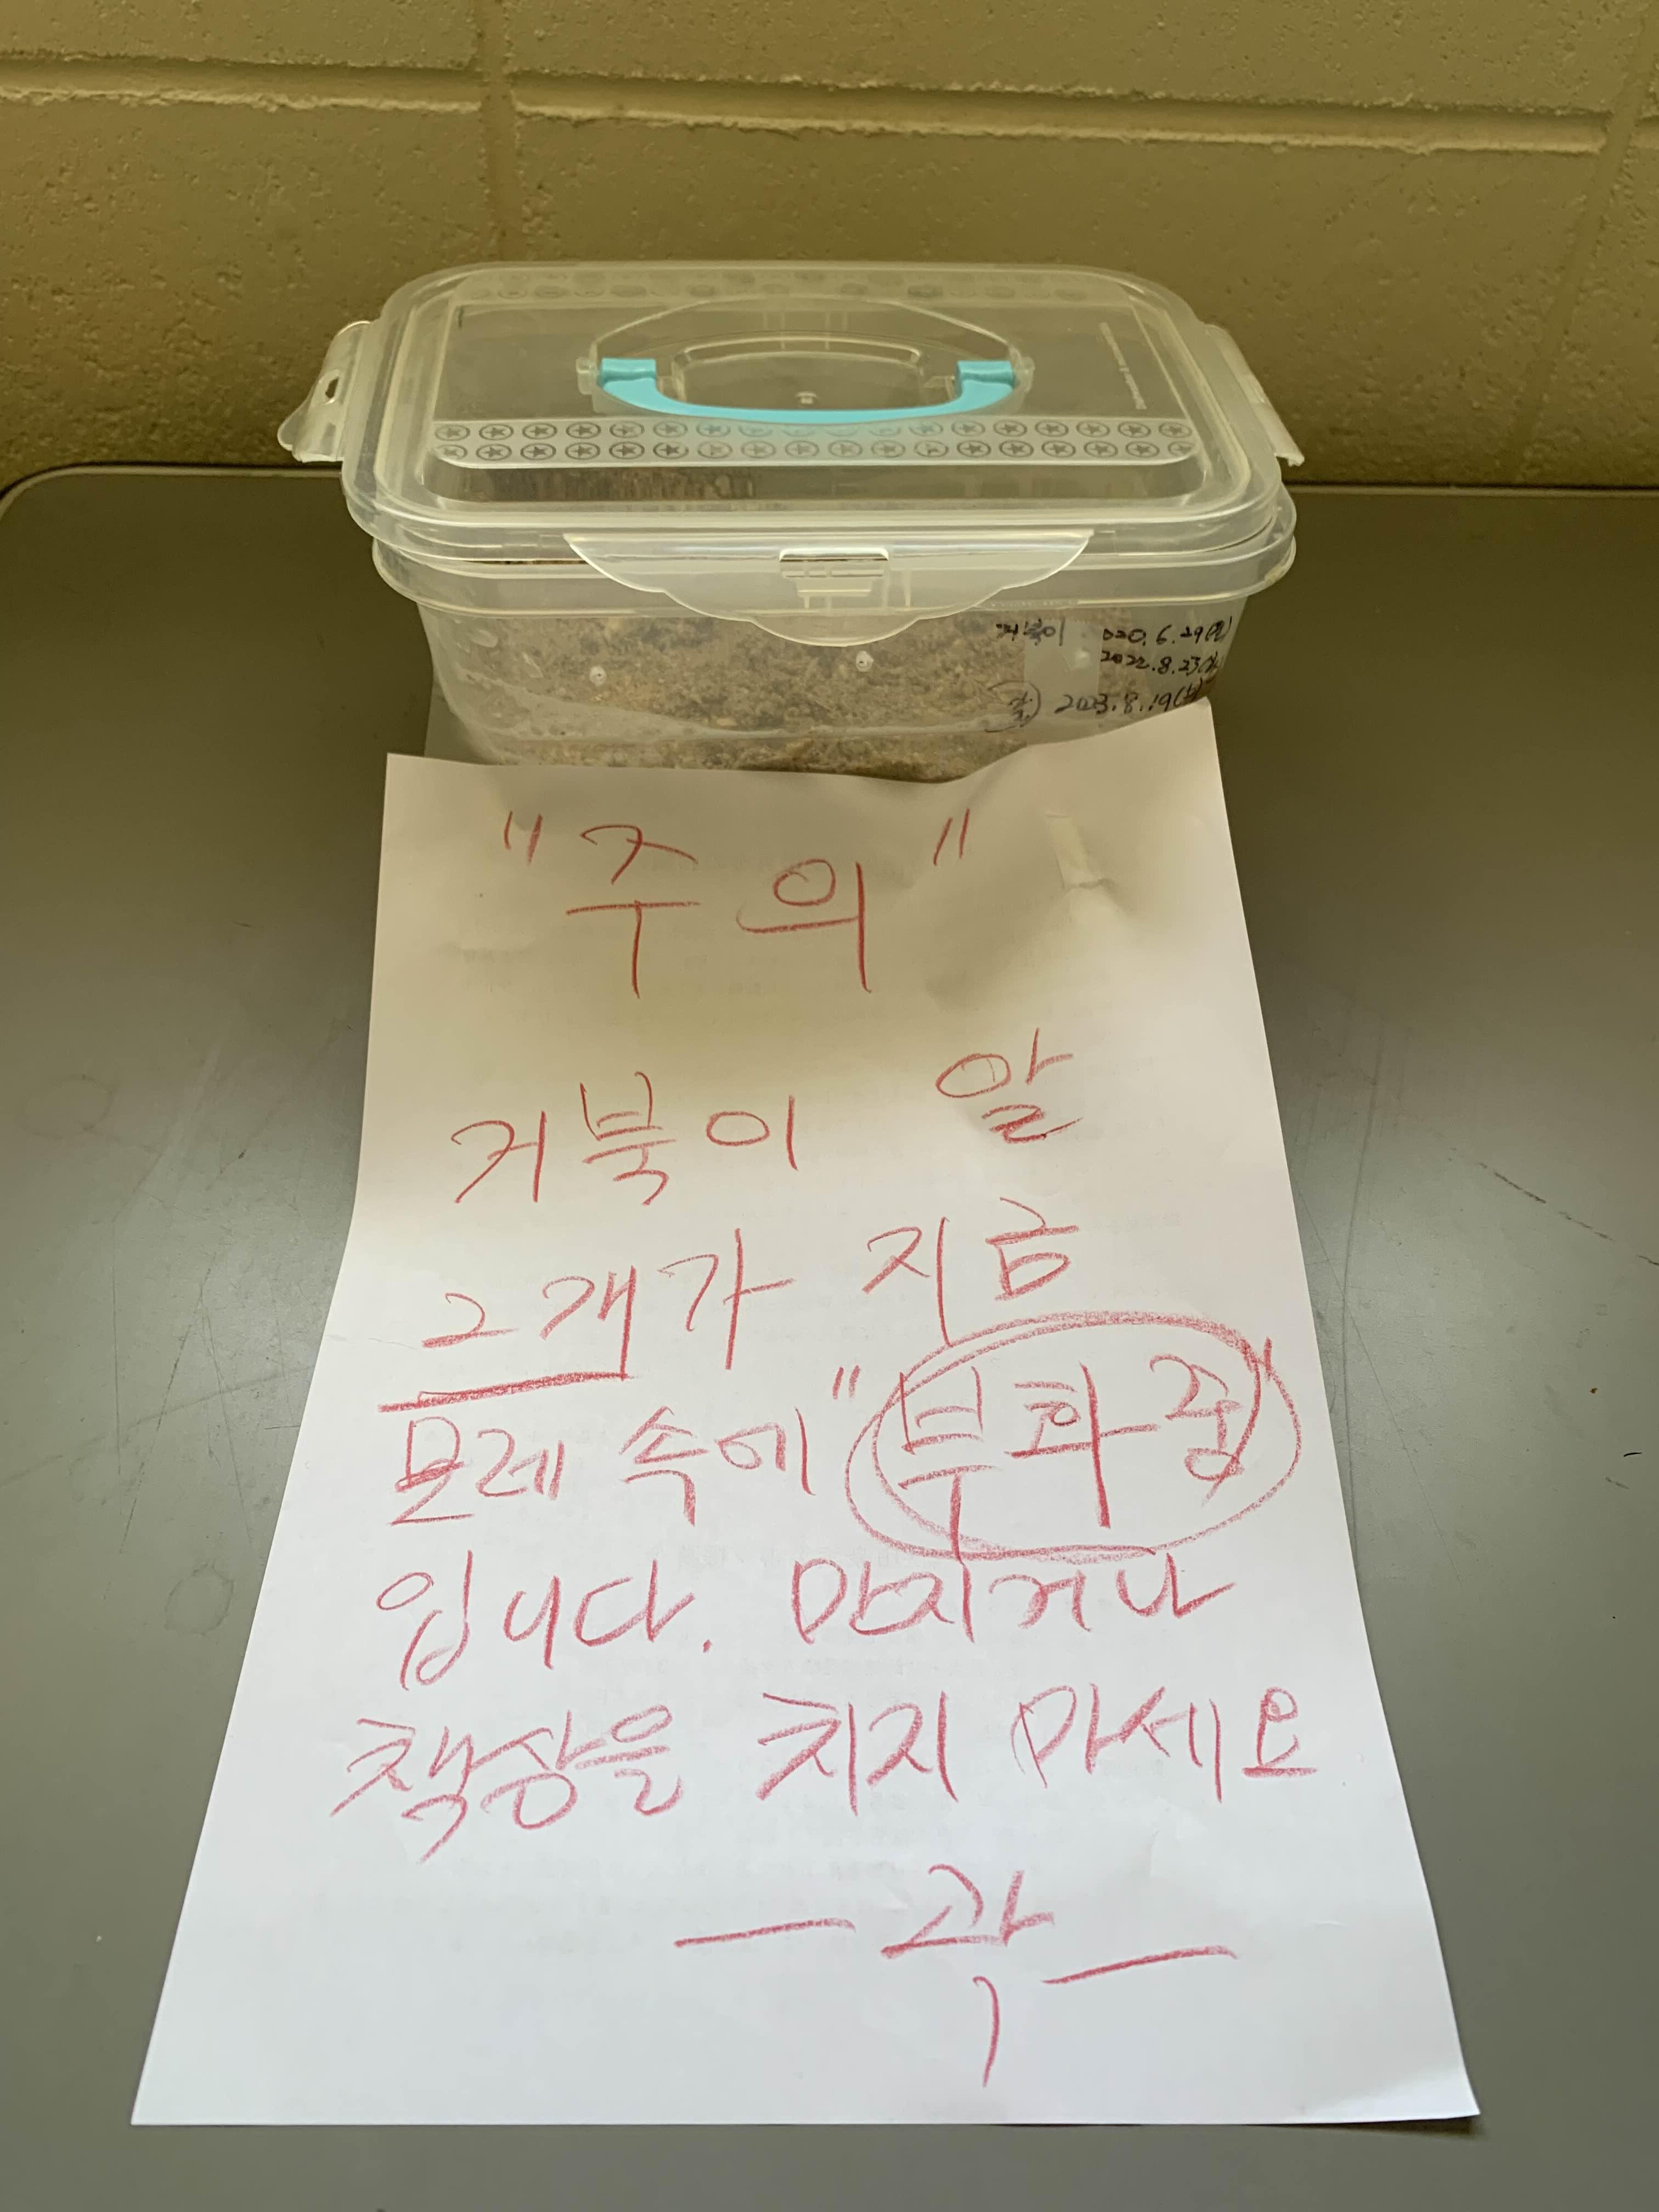 거북이 2020.6.29(월)
2022.8.23(화)
2023.8.19(
"주의"
거북이 알
2개가 지금
모레 속에 "부화중"
입니다. 만지거나
책상을 치지 마세요
ㅡ곽ㅡ